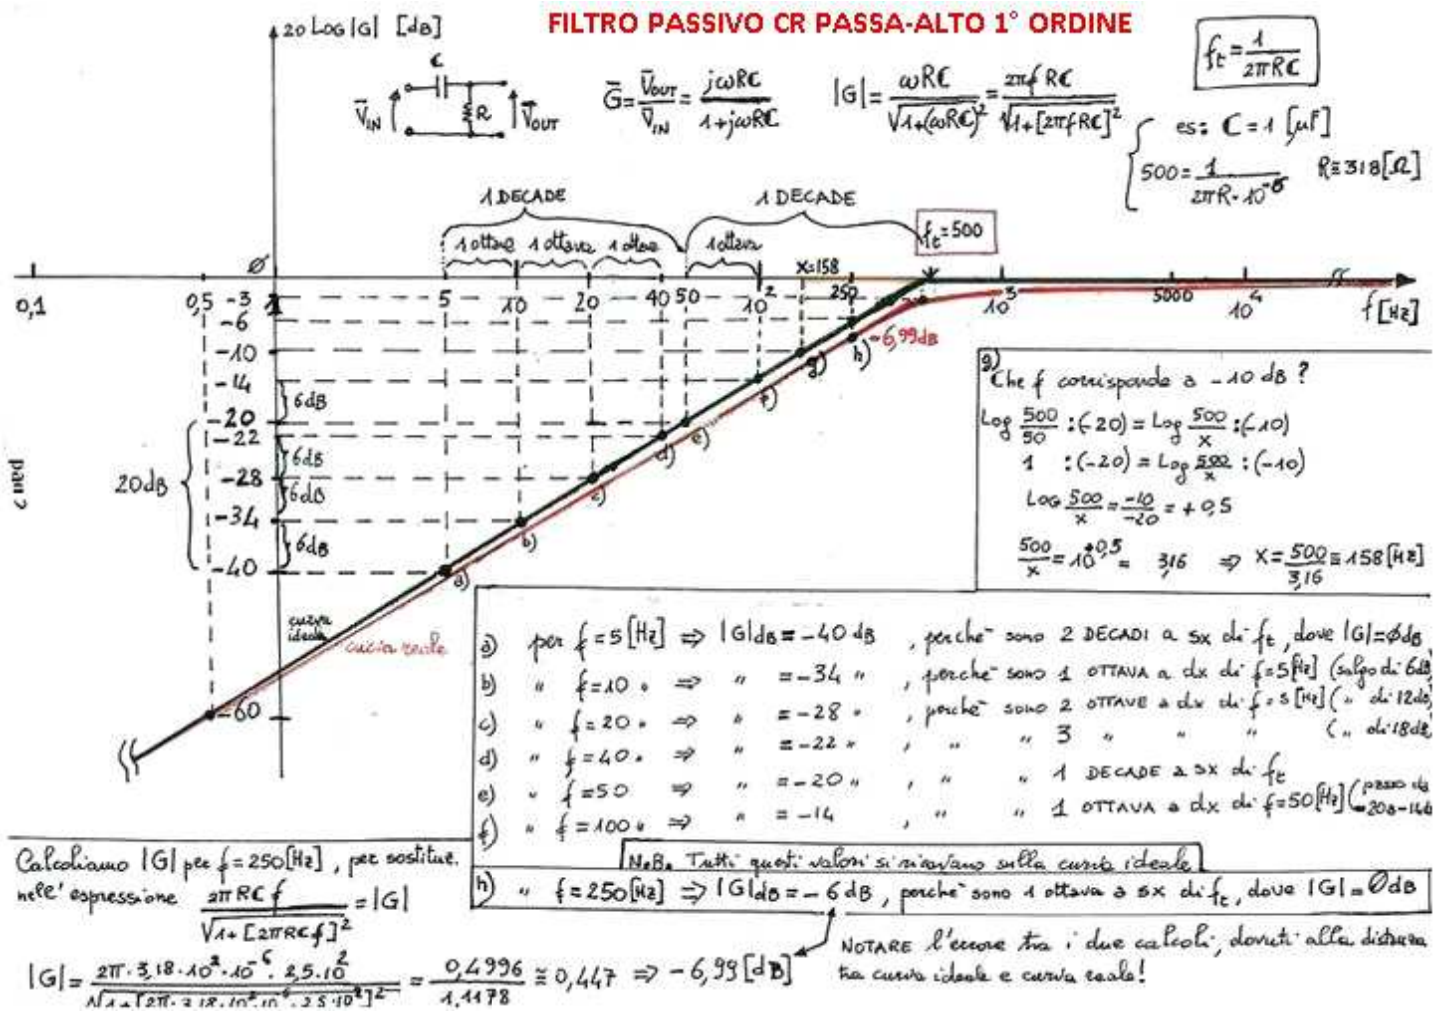 FILTRO PASSIVO CR PASSA-ALTO 1° ORDINE
20 LOG |G| [dB]
f_t = 1/(2πRC)
C
R
V̄_IN
V̄_OUT
Ḡ = V̄_OUT/V̄_IN = jωRC/(1+jωRC)
|G| = ωRC/√(1+(ωRC)²) = 2πfRC/√(1+[2πfRC]²)
es: C = 1 [μF]
500 = 1/(2πR·10⁻⁶) R≅318[Ω]
1 DECADE 1 DECADE
1 ottava 1 ottava 1 ottava 1 ottava
f_t=500
Ø X=158
0,1 0,5 1 5 10 20 40 50 10² 250 10³ 5000 10⁴ f [Hz]
-3
-6
-10
-14
-20
-22
-28
-34
-40
-60
6dB
6dB
6dB
6dB
20dB
a)
b)
c)
d)
e)
f)
g)
h)
-6,99dB
curva ideale
curva reale
g)
Che f corrisponde a -10 dB?
Log 500/50 : (-20) = Log 500/x : (-10)
1 : (-20) = Log 500/x : (-10)
LOG 500/x = -10/-20 = +0,5
500/x = 10^+0,5 = 3,16 ⇒ X = 500/3,16 ≅ 158 [Hz]
a) per f=5[Hz] ⇒ |G|dB = -40 dB, perchè sono 2 DECADI a sx di f_t, dove |G|=ØdB
b) " f=10 " ⇒ " = -34 ", perchè sono 1 OTTAVA a dx di f=5[Hz] (salgo di 6dB
c) " f=20 " ⇒ " = -28 ", perchè sono 2 OTTAVE a dx di f=5[Hz] ( " di 12dB
d) " f=40 " ⇒ " = -22 ", " " 3 " " " ( " di 18dB
e) " f=50 ⇒ " = -20 ", " " 1 DECADE a sx di f_t
f) " f=100 " ⇒ " = -14 , " " 1 OTTAVA a dx di f=50[Hz] (passo da
N.B. Tutti questi valori si ricavano sulla curva ideale
h) " f=250[Hz] ⇒ |G|dB = -6 dB, perchè sono 1 ottava a sx di f_t, dove |G|=ØdB
Calcoliamo |G| per f=250[Hz], per sostituz.
nell'espressione 2πRCf/√(1+[2πRCf]²) = |G|
|G| = 2π·3,18·10²·10⁻⁶·2,5·10²/√(1+[2π·3,18·10²·10⁻⁶·2,5·10²]²) = 0,4996/1,1178 ≅ 0,447 ⇒ -6,99[dB]
NOTARE l'errore tra i due calcoli, dovuti alla distanza
tra curva ideale e curva reale!